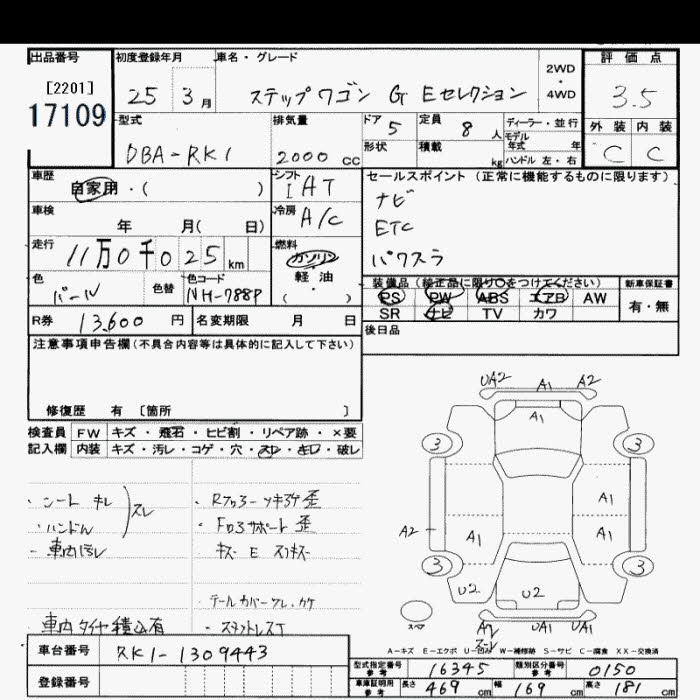 出品番号 初度登録年月 車名・グレード 評価点
[2201] 25 3月 ステップワゴン G Eセレクション 2WD・4WD 3.5
17109
型式 排気量 ドア 5 定員 8人 ディーラー・並行 外装 内装
DBA-RK1 2000cc 形状 積載 kg モデル年式 年 C C
ハンドル 左・右
車歴 自家用・( ) シフト IAT セールスポイント (正常に機能するものに限ります)
車検 年 月( 日) 冷房 A/C ナビ
ETC
走行 11万0千025km 燃料 ガソリン 軽・油 ( ) パワスラ
色 パール 色替 色コード NH-788P 装備品 (純正品に限り○をつけてください) 新車保証書
PS PW ABS エアB AW 有・無
R券 13,600円 名変期限 月 日 SR ナビ TV カワ
注意事項申告欄(不具合内容等は具体的に記入して下さい) 後日品
修復歴 有 〔箇所 〕
検査員 FW キズ・飛石・ヒビ割・リペア跡・×要
記入欄 内装 キズ・汚レ・コゲ・穴・スレ・キレ・破レ
・シート キレ
・ハンドル スレ
・車内汚レ
車内タイヤ積込有
・Rクロスーツキアゲ歪
・Fロアサポート歪
キズ E スリキズ
テールカバーワレ・カケ
UA2 A1 A2
A1
3 3
A1
A2 A1 A1
3 3
U2 U2
スペア UA1 UA1
A=キズ E=エクボ U=凹み W=補修跡 S=サビ C=腐食 XX=交換済
車台番号 RK1-1309443
登録番号
型式指定番号 参考 16345 類別区分番号 参考 0150
車庫証明用 参考 長さ 469cm 幅 169cm 高さ 181cm